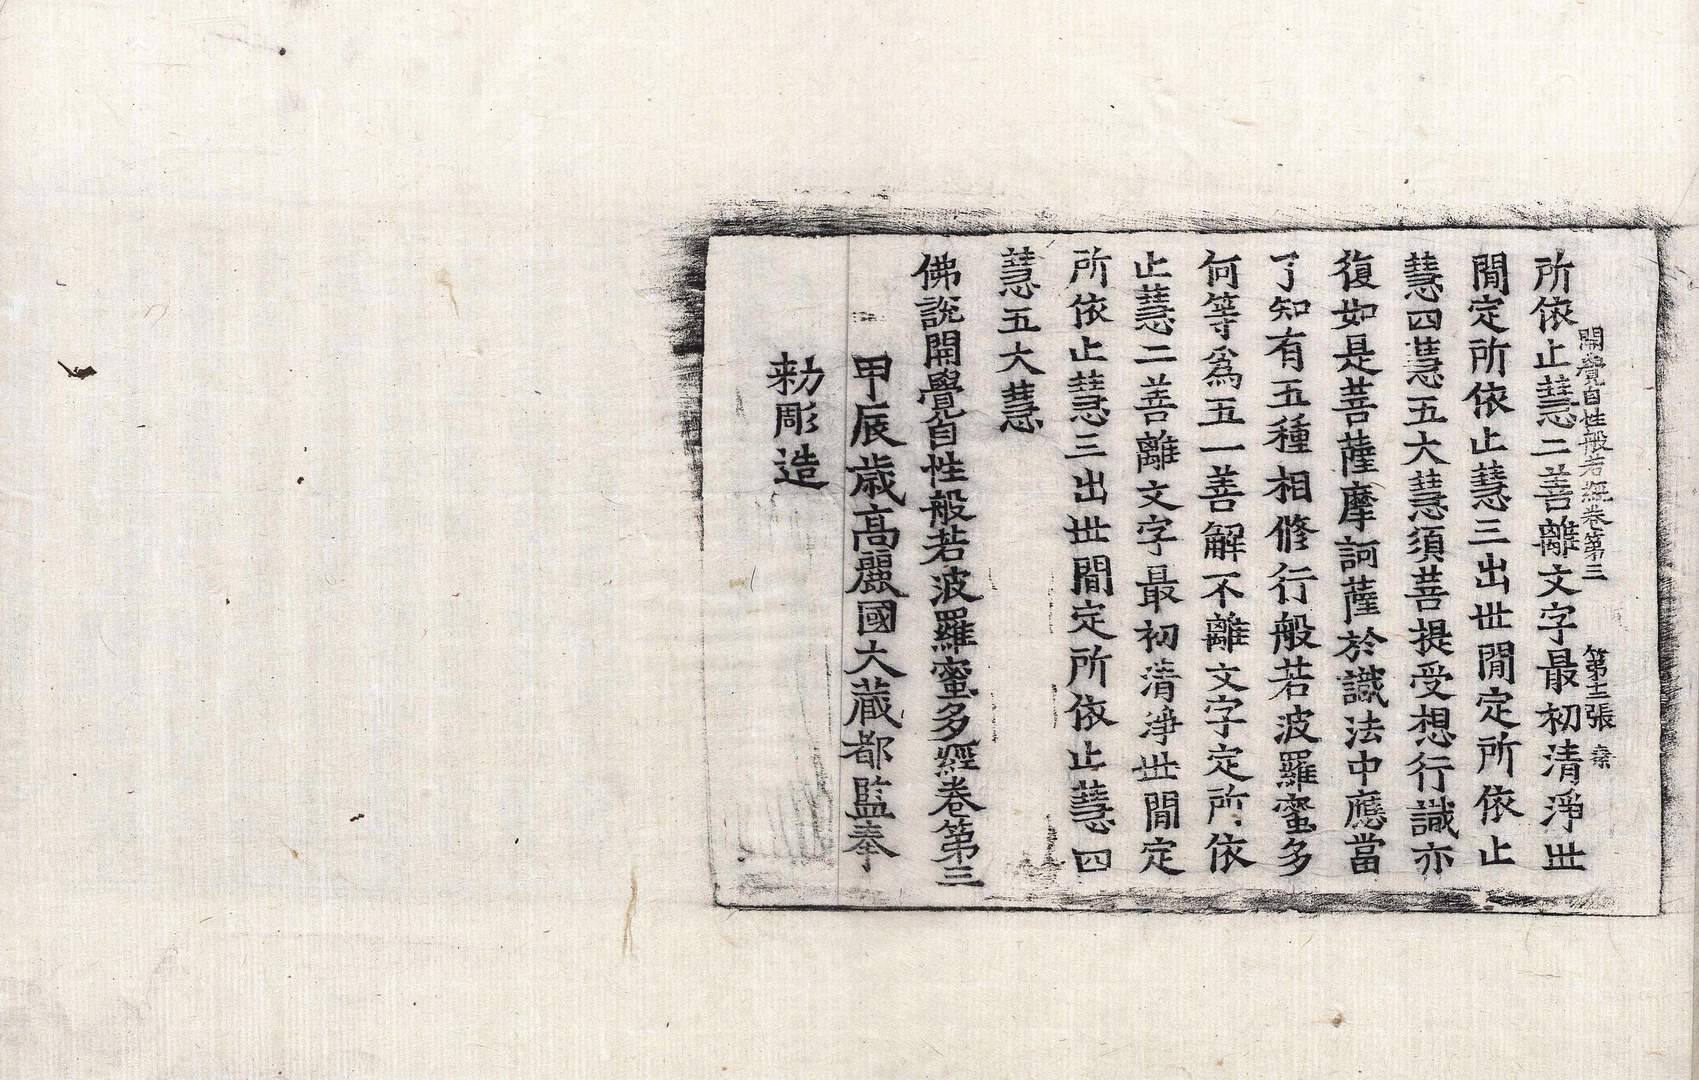 開覺自性般若經卷第三 第十二張 秦
所依止慧二善離文字最初清淨世
閒定所依止慧三出世閒定所依止
慧四慧五大慧須菩提受想行識亦
復如是菩薩摩訶薩於識法中應當
了知有五種相修行般若波羅蜜多
何等爲五一善解不離文字定所依
止慧二善離文字最初清淨世閒定
所依止慧三出世閒定所依止慧四
慧五大慧
佛說開覺自性般若波羅蜜多經卷第三
甲辰歲高麗國大藏都監奉
勅彫造